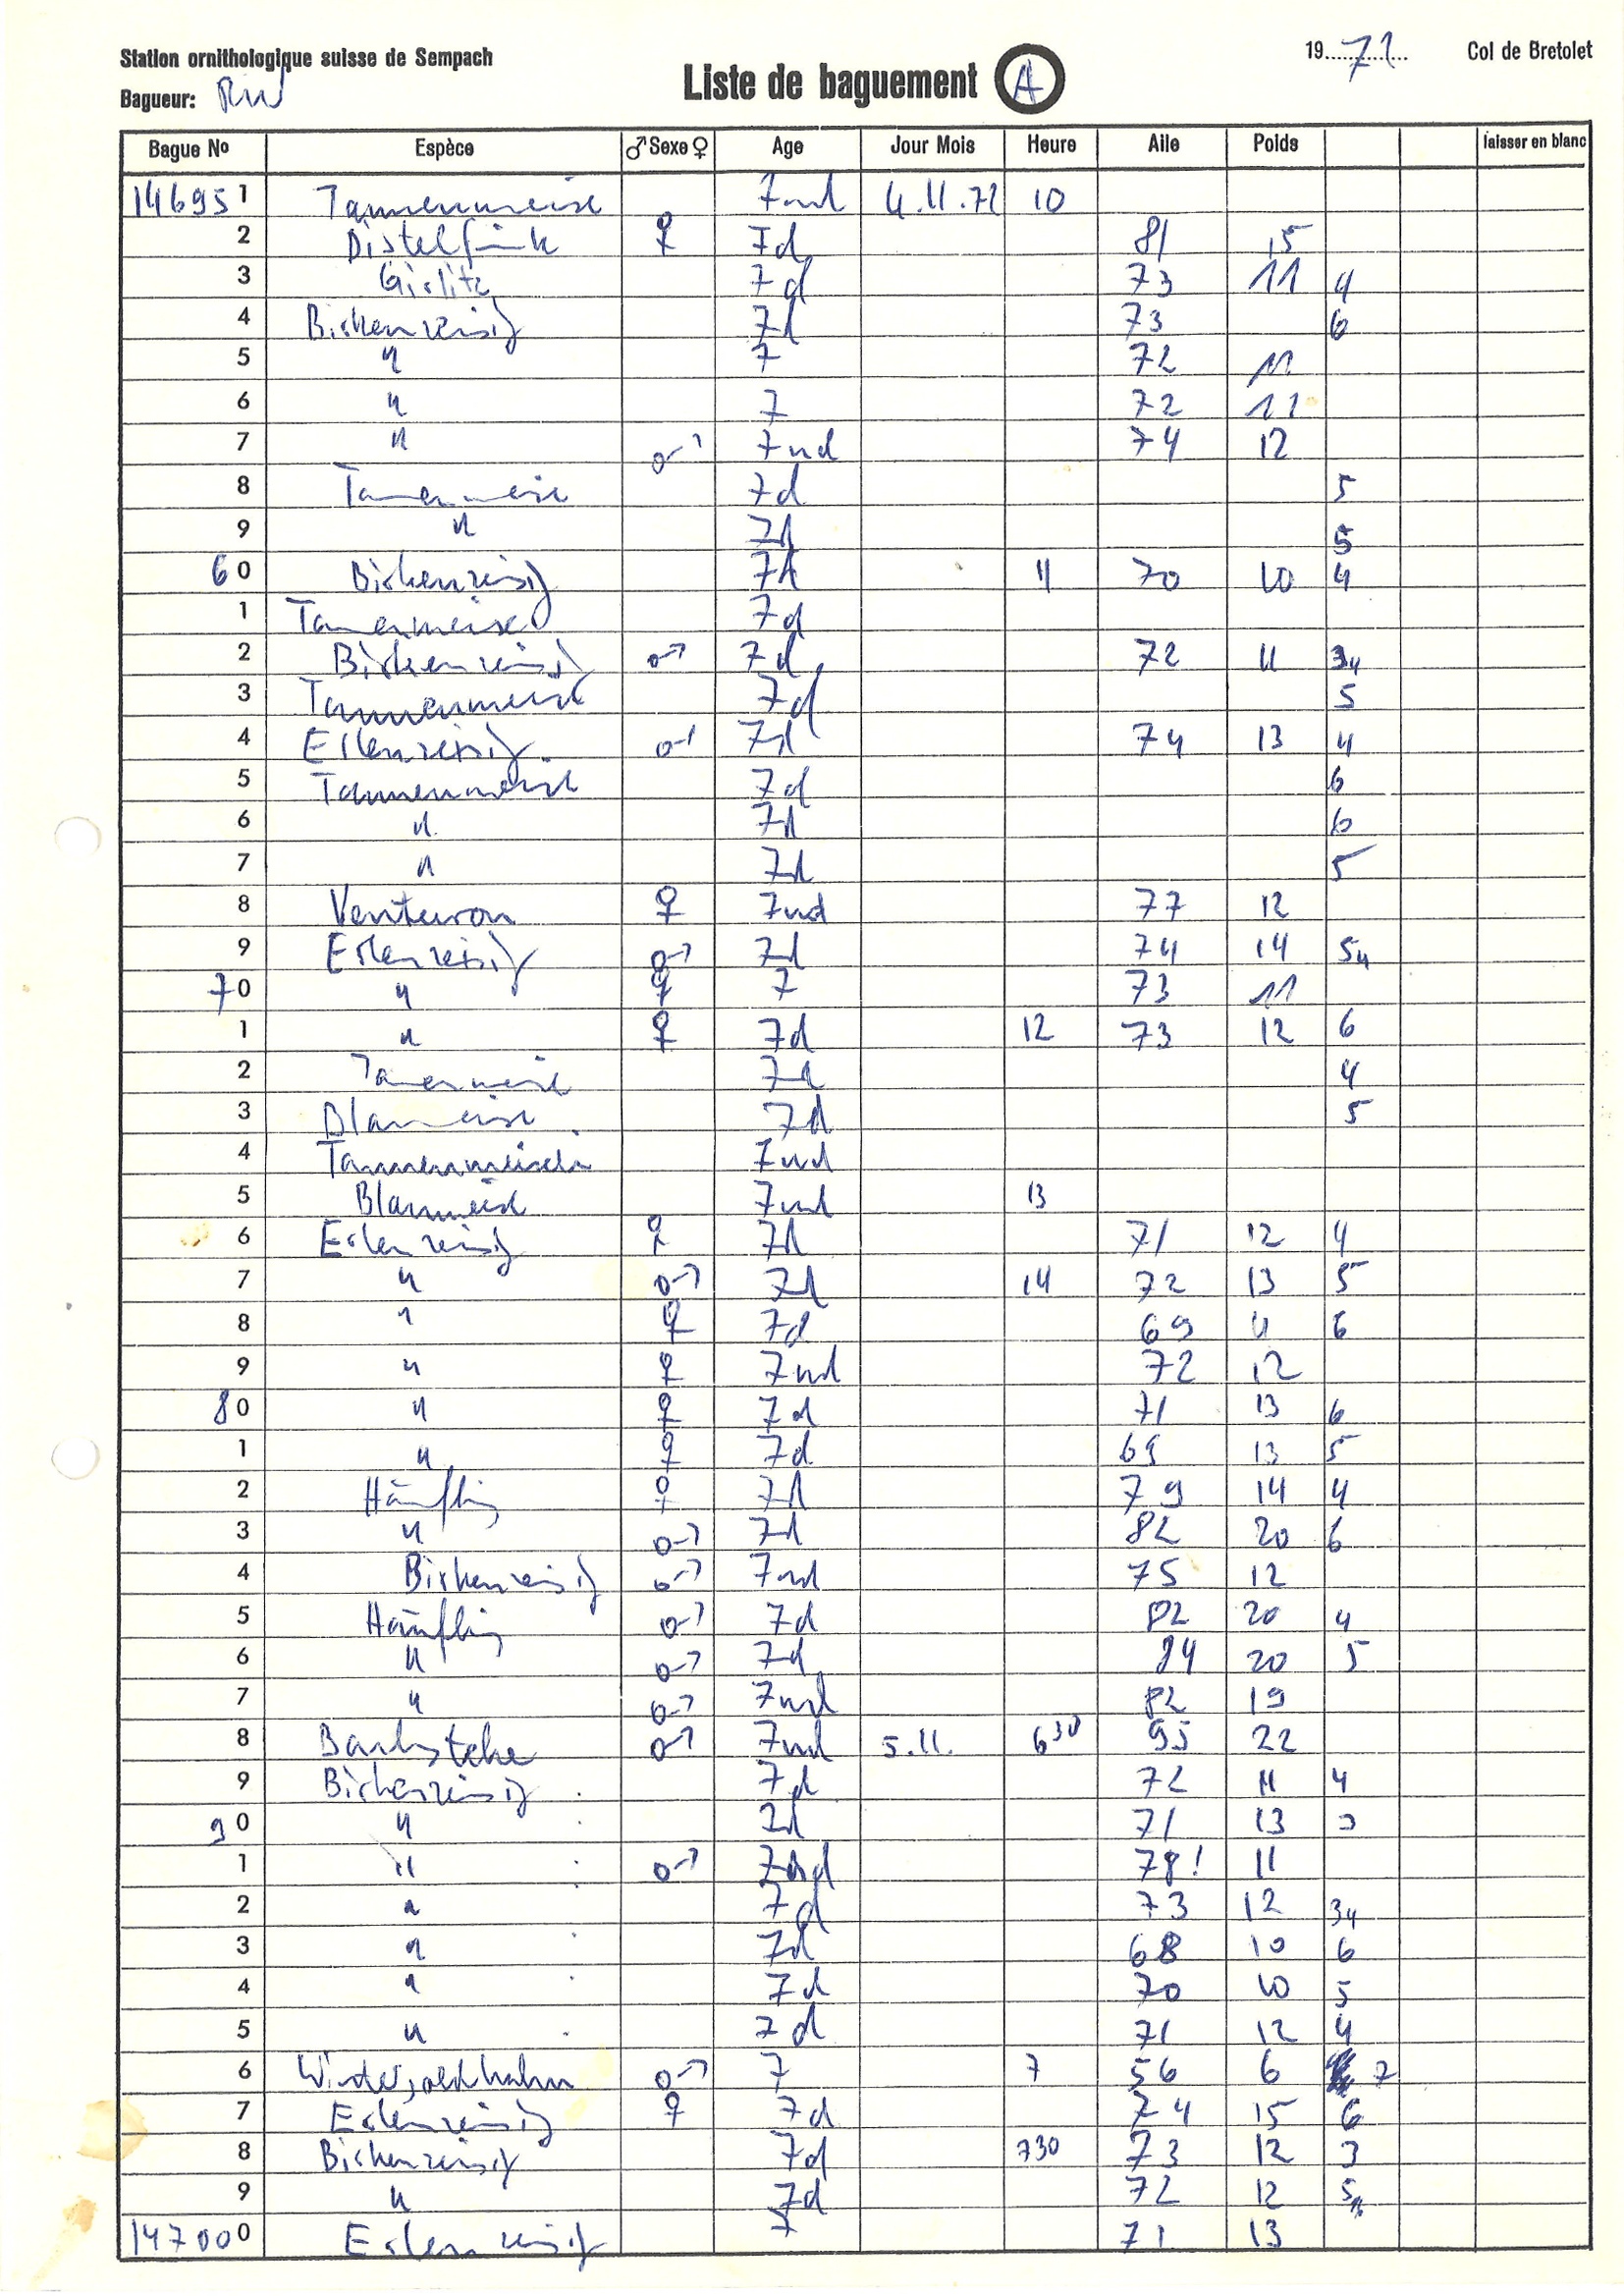 Station ornithologique suisse de Sempach
1972 Col de Bretolet
Bagueur: RW
Liste de baguement A
Bague No Espèce ♂ Sexe ♀ Age Jour Mois Heure Aile Poids laisser en blanc
146951 Tannenmeise 7nd 4.11.72 10
2 Distelfink ♀ 7d 81 15
3 Girlitz 7d 73 11 4
4 Birkenzeisig 7d 73 6
5 " 7 72 11
6 " 7 72 11
7 " ♂ 7nd 74 12
8 Tannenmeise 7d 5
9 " 7d 5
60 Birkenzeisig 7d 11 70 10 4
1 Tannenmeise 7d
2 Birkenzeisig ♂ 7d 72 11 34
3 Tannenmeise 7d 5
4 Erlenzeisig ♂ 7d 74 13 4
5 Tannenmeise 7d 6
6 " 7d 6
7 " 7d 5
8 Venturon ♀ 7nd 77 12
9 Erlenzeisig ♂ 7d 74 14 54
70 " ♀ 7 73 11
1 " ♀ 7d 12 73 12 6
2 Tannenmeise 7d 4
3 Blaumeise 7d 5
4 Tannenmeise 7nd
5 Blaumeise 7nd 13
6 Erlenzeisig ♀ 7d 71 12 4
7 " ♂ 7d 14 72 13 5
8 " ♀ 7d 69 11 6
9 " ♀ 7nd 72 12
80 " ♀ 7d 71 13 6
1 " ♀ 7d 69 13 5
2 Hänfling ♀ 7d 79 14 4
3 " ♂ 7d 82 20 6
4 Birkenzeisig ♂ 7nd 75 12
5 Hänfling ♂ 7d 82 20 4
6 " ♂ 7d 84 20 5
7 " ♂ 7nd 82 19
8 Bachstelze ♂ 7nd 5.11. 6³⁰ 95 22
9 Birkenzeisig 7d 72 11 4
90 " 7d 71 13 3
1 " ♂ 7nd 78! 11
2 " 7d 73 12 34
3 " 7d 68 10 6
4 " 7d 70 10 5
5 " 7d 71 12 4
6 Wintergoldhahn ♂ 7 7 56 6 7
7 Erlenzeisig ♀ 7d 74 15 6
8 Birkenzeisig 7d 730 73 12 3
9 " 7d 72 12 5
147000 Erlenzeisig 7 71 13